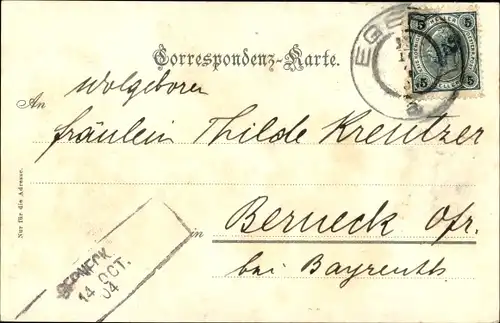 Correspondenz-Karte.
EGE
5 5
5 5
HELLER
Wolgeboren
An
fräulein Thilde Kreutzer
in
Berneck Ofr.
bei Bayreuth
Nur für die Adresse.
BERNECK
14 OCT.
04